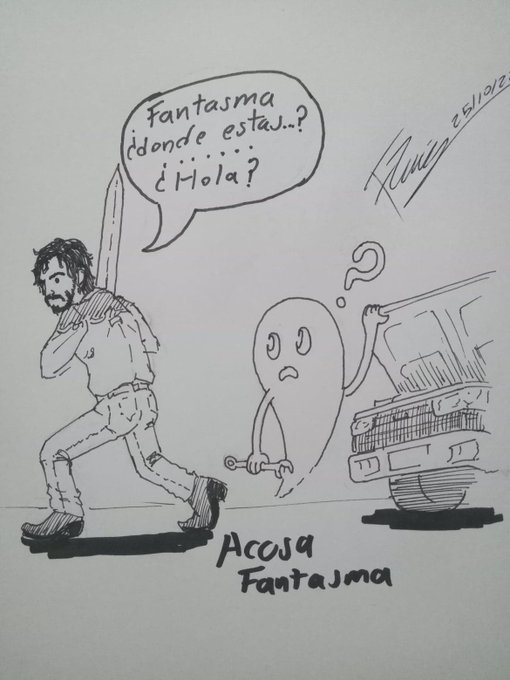 Fantasma
¿donde estas...?
.......
¿Hola?
25/10/2
?
Acosa
Fantasma